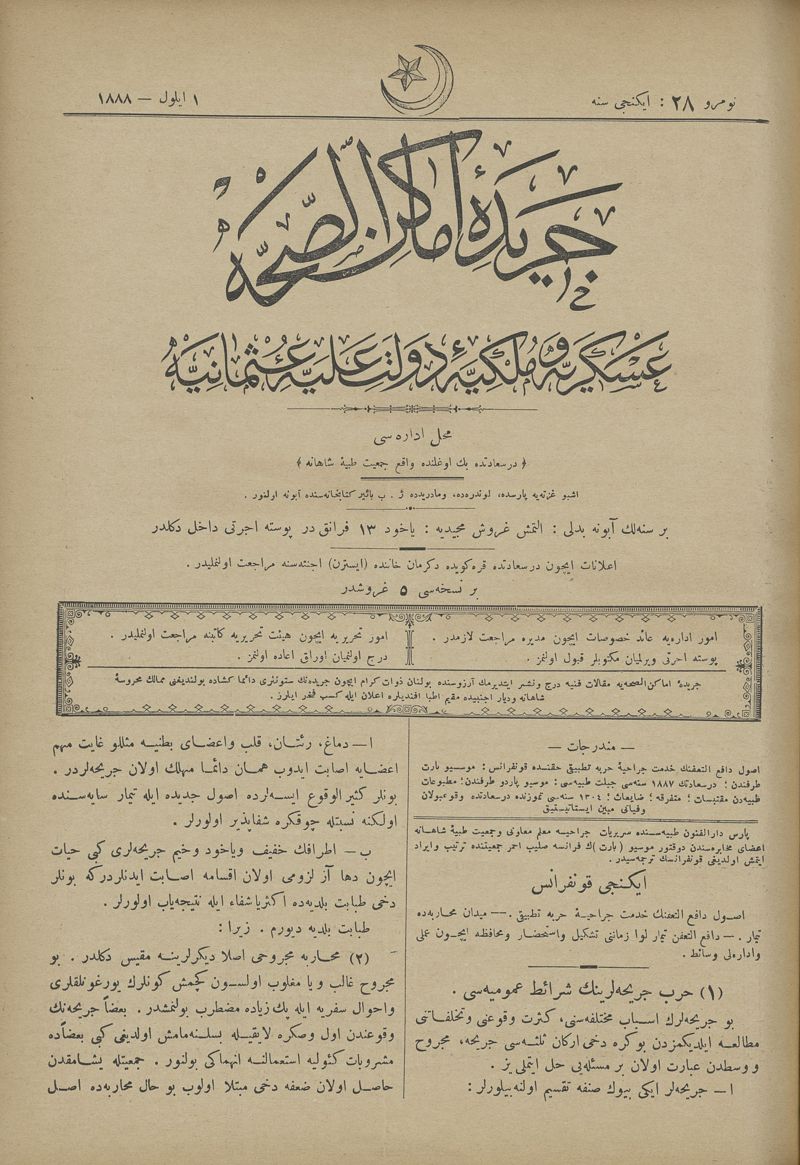 نومرو ٢٨ : ایكنجی سنه
١ ایلول — ١٨٨٨
جریدهٔ اماكن الصحه
عسكریه و ملكیهٔ دولت علیهٔ عثمانیه
محل اداره سی
﴿ درسعادتده بك اوغلنده واقع جمعیت طبیهٔ شاهانه ﴾
اشبو غزته‌یه پارسده، لوندره‌ده، ومادریدده ژ . ب باییر كتابخانه‌سنده آبونه اولنور .
بر سنه‌لك آبونه بدلی : التمش غروش مجیدیه : یاخود ١٣ فرانق در پوسته اجرتی داخل دكلدر
اعلانات ایچون درسعادتده قره‌كویده دكرمان خاننده (ایسترن) اجنته‌سنه مراجعت اولنملیدر .
بر نسخه‌سی ٥ غروشدر
امور اداریه عائد خصوصات ایچون مدیره مراجعت لازمدر .
پوسته اجرتی ویرلمیان مكتوبلر قبول اولنمز .
امور تحریریه ایچون هیئت تحریریه كاتبنه مراجعت اولنملیدر .
درج اولنمیان اوراق اعاده اولنمز .
جریدهٔ اماكن‌الصحه‌یه مقالات فنیه درج ونشر ایتدیرمك آرزوسنده بولنان ذوات كرام ایچون جریده‌نك ستونلری دائما كشاده بولندیغنی ممالك محروسهٔ
شاهانه ودیار اجنبیده مقیم اطبا افندیلره اعلان ایله كسب فخر ایلرز .
— مندرجات —
اصول دافع التعفنك خدمت جراحیهٔ حربه تطبیقی حقنده قونفرانس : موسیو بارت
طرفندن ؛ درسعادتك ١٨٨٧ سنه‌سی جبلت طبیه‌سی : موسیو پاردو طرفندن ؛ مطبوعات
طبیه‌دن مقتبسات ؛ متفرقه ؛ ضایعات ؛ ١٣٠٤ سنه‌سی تموزنده درسعادتده وقوعبولان
وفیاتی مبین ایستاتیستیق
پارس دارالفنون طبیه‌سنده سریریات جراحیه معلم معاونی وجمعیت طبیهٔ شاهانه
اعضای مخابره‌سندن دوقتور موسیو (بارت) ك فرانسه صلیب احمر جمعیتنده ترتیب وایراد
ایتمش اولدیغی قونفرانسك ترجمه‌سیدر .
ایكنجی قونفرانس
اصول دافع التعفنك خدمت جراحیهٔ حربه تطبیقی . — میدان محاربه‌ده
تیمار . — دافع التعفن تیمار لوا زماتنی تشكیل واستحضار ومحافظه ایچون عملی
واداره‌لی وسائط .
(١) حرب جریحه‌لرینك شرائط عمومیه‌سی .
بو جریحه‌لرك اسباب مختلفه‌سنی، كثرت وقوعنی وتخلفاتنی
مطالعه ایلدیكمزدن بوكره دخی اركان ثلثه‌سی جریحه، مجروح
ووسطدن عبارت اولان بر مسئله‌یی حل ایتملی یز .
ا — جریحه‌لر ایكی بیوك صنفه تقسیم اولنه‌بیلورلر :
ا — دماغ، رئتان، قلب واعضای بطنیه مثللو غایت مهم
اعضایه اصابت ایدوب همان دائما مهلك اولان جریحه‌لردر .
بونلر كثیر الوقوع ایسه‌لرده اصول جدیده ایله تیمار سایه‌سنده
اولكنه نسبتله چوقكره شفاپذیر اولورلر .
ب — اطرافك خفیف ویاخود وخیم جریحه‌لری كبی حیات
ایچون دها آز لزومی اولان اقسامه اصابت ایدنلردركه بونلر
دخی طبابت بلدیه‌ده اكثریا شفاء ایله نتیجه‌یاب اولورلر .
طبابت بلدیه دیورم . زیرا :
(٢) محاربه مجروحی اصلا دیكرلرینه مقیس دكلدر . بو
مجروح غالب ویا مغلوب اولسون كچمش كونلرك یورغونلقلری
واحوال سفریه ایله پك زیاده مضطرب بولنمشدر . بعضاً جریحه‌نك
وقوعندن اول وصكره لایقیله بسلنه‌مامش اولدیغی كبی بعضاً‌ده
مشروبات كئولیه استعمالنه انهماكی بولنور . جمعیتله یشامقدن
حاصل اولان ضعفه دخی مبتلا اولوب بو حال محاربه‌ده اصل